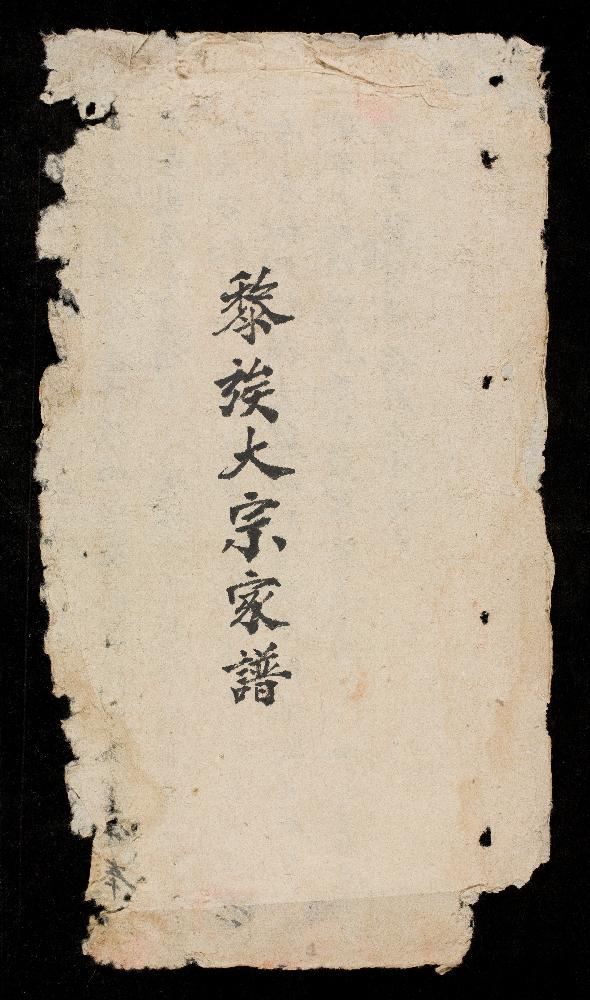 黎族大宗家譜